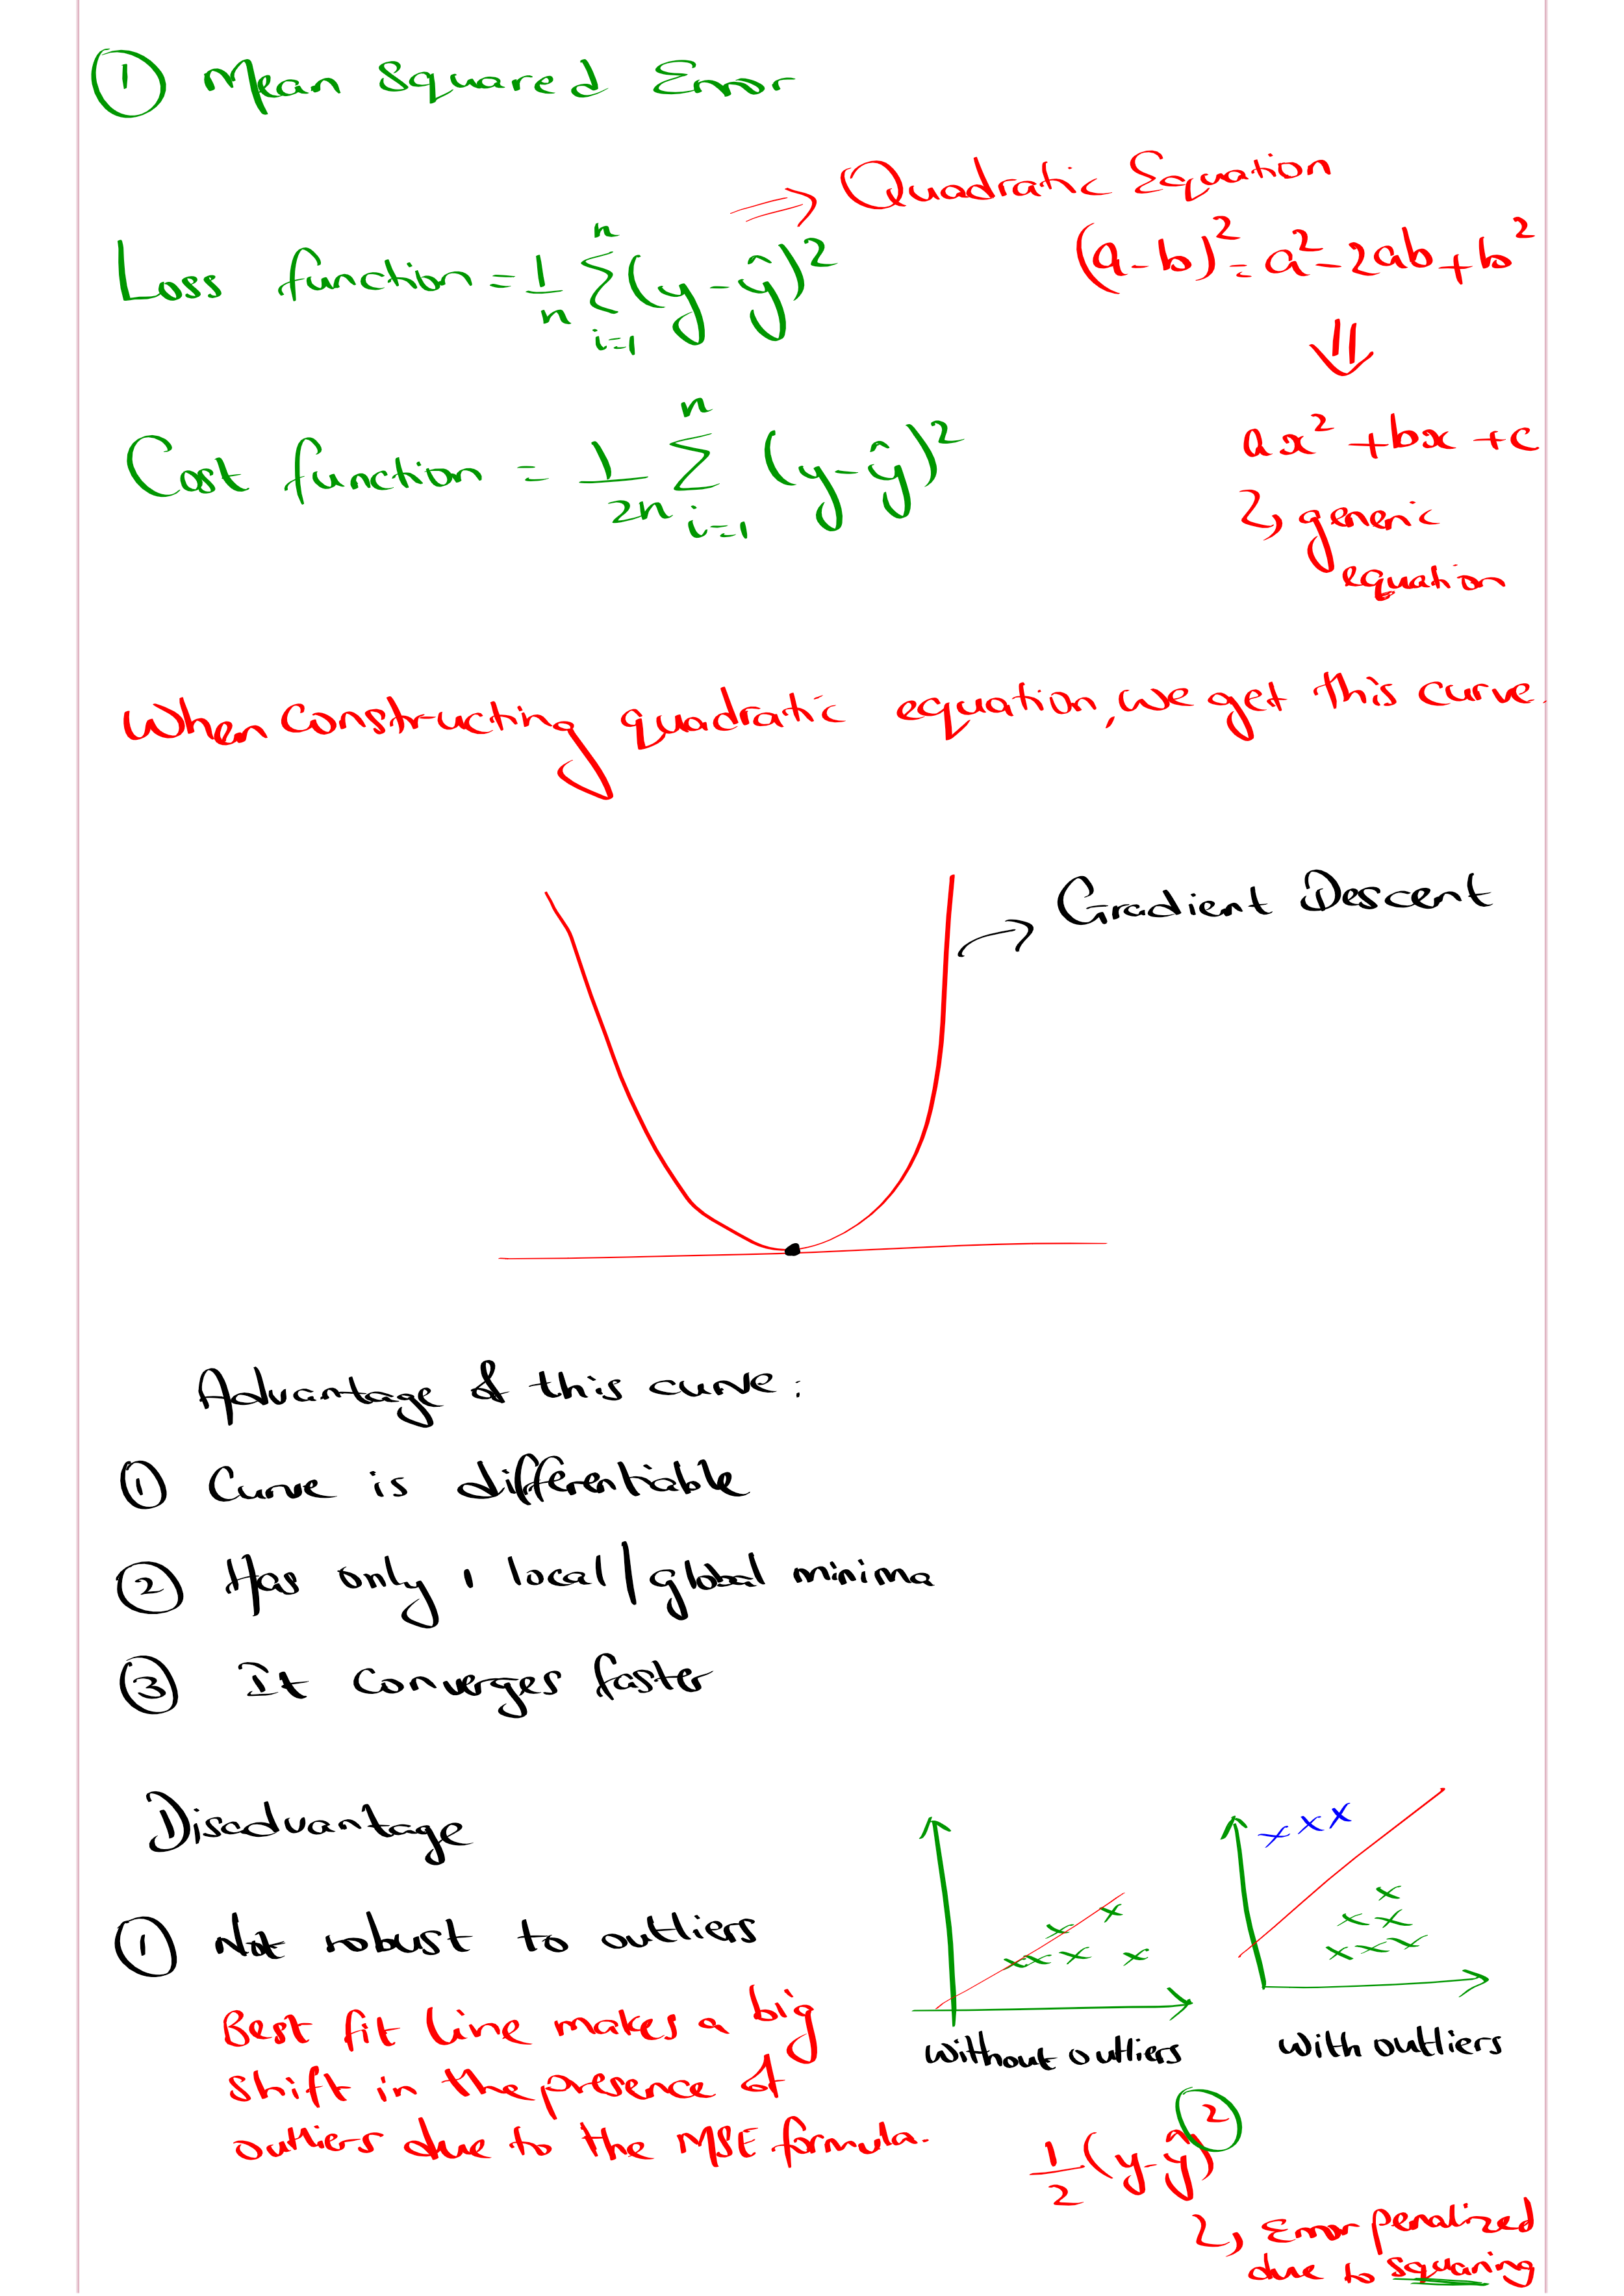 ① Mean Squared Error
⇒ Quadratic Equation
Loss function = 1/n Σ_{i=1}^{n} (y - ŷ)²
(a-b)² = a² - 2ab + b²
⇓
Cost function = 1/2n Σ_{i=1}^{n} (y - ŷ)²
ax² + bx + c
↳ generic
equation
When constructing quadratic equation, we get this curve.
→ Gradient Descent
Advantage of this curve :
① Curve is differentiable
② Has only 1 local/global minima
③ It converges faster
Disadvantage
x x x
x x x x x x
x x x x x x
① Not robust to outliers
without outliers
with outliers
Best fit line makes a big
shift in the presence of
outliers due to the MSE formula.
1/2 (y - ŷ)²
↳ Error penalized
due to squaring